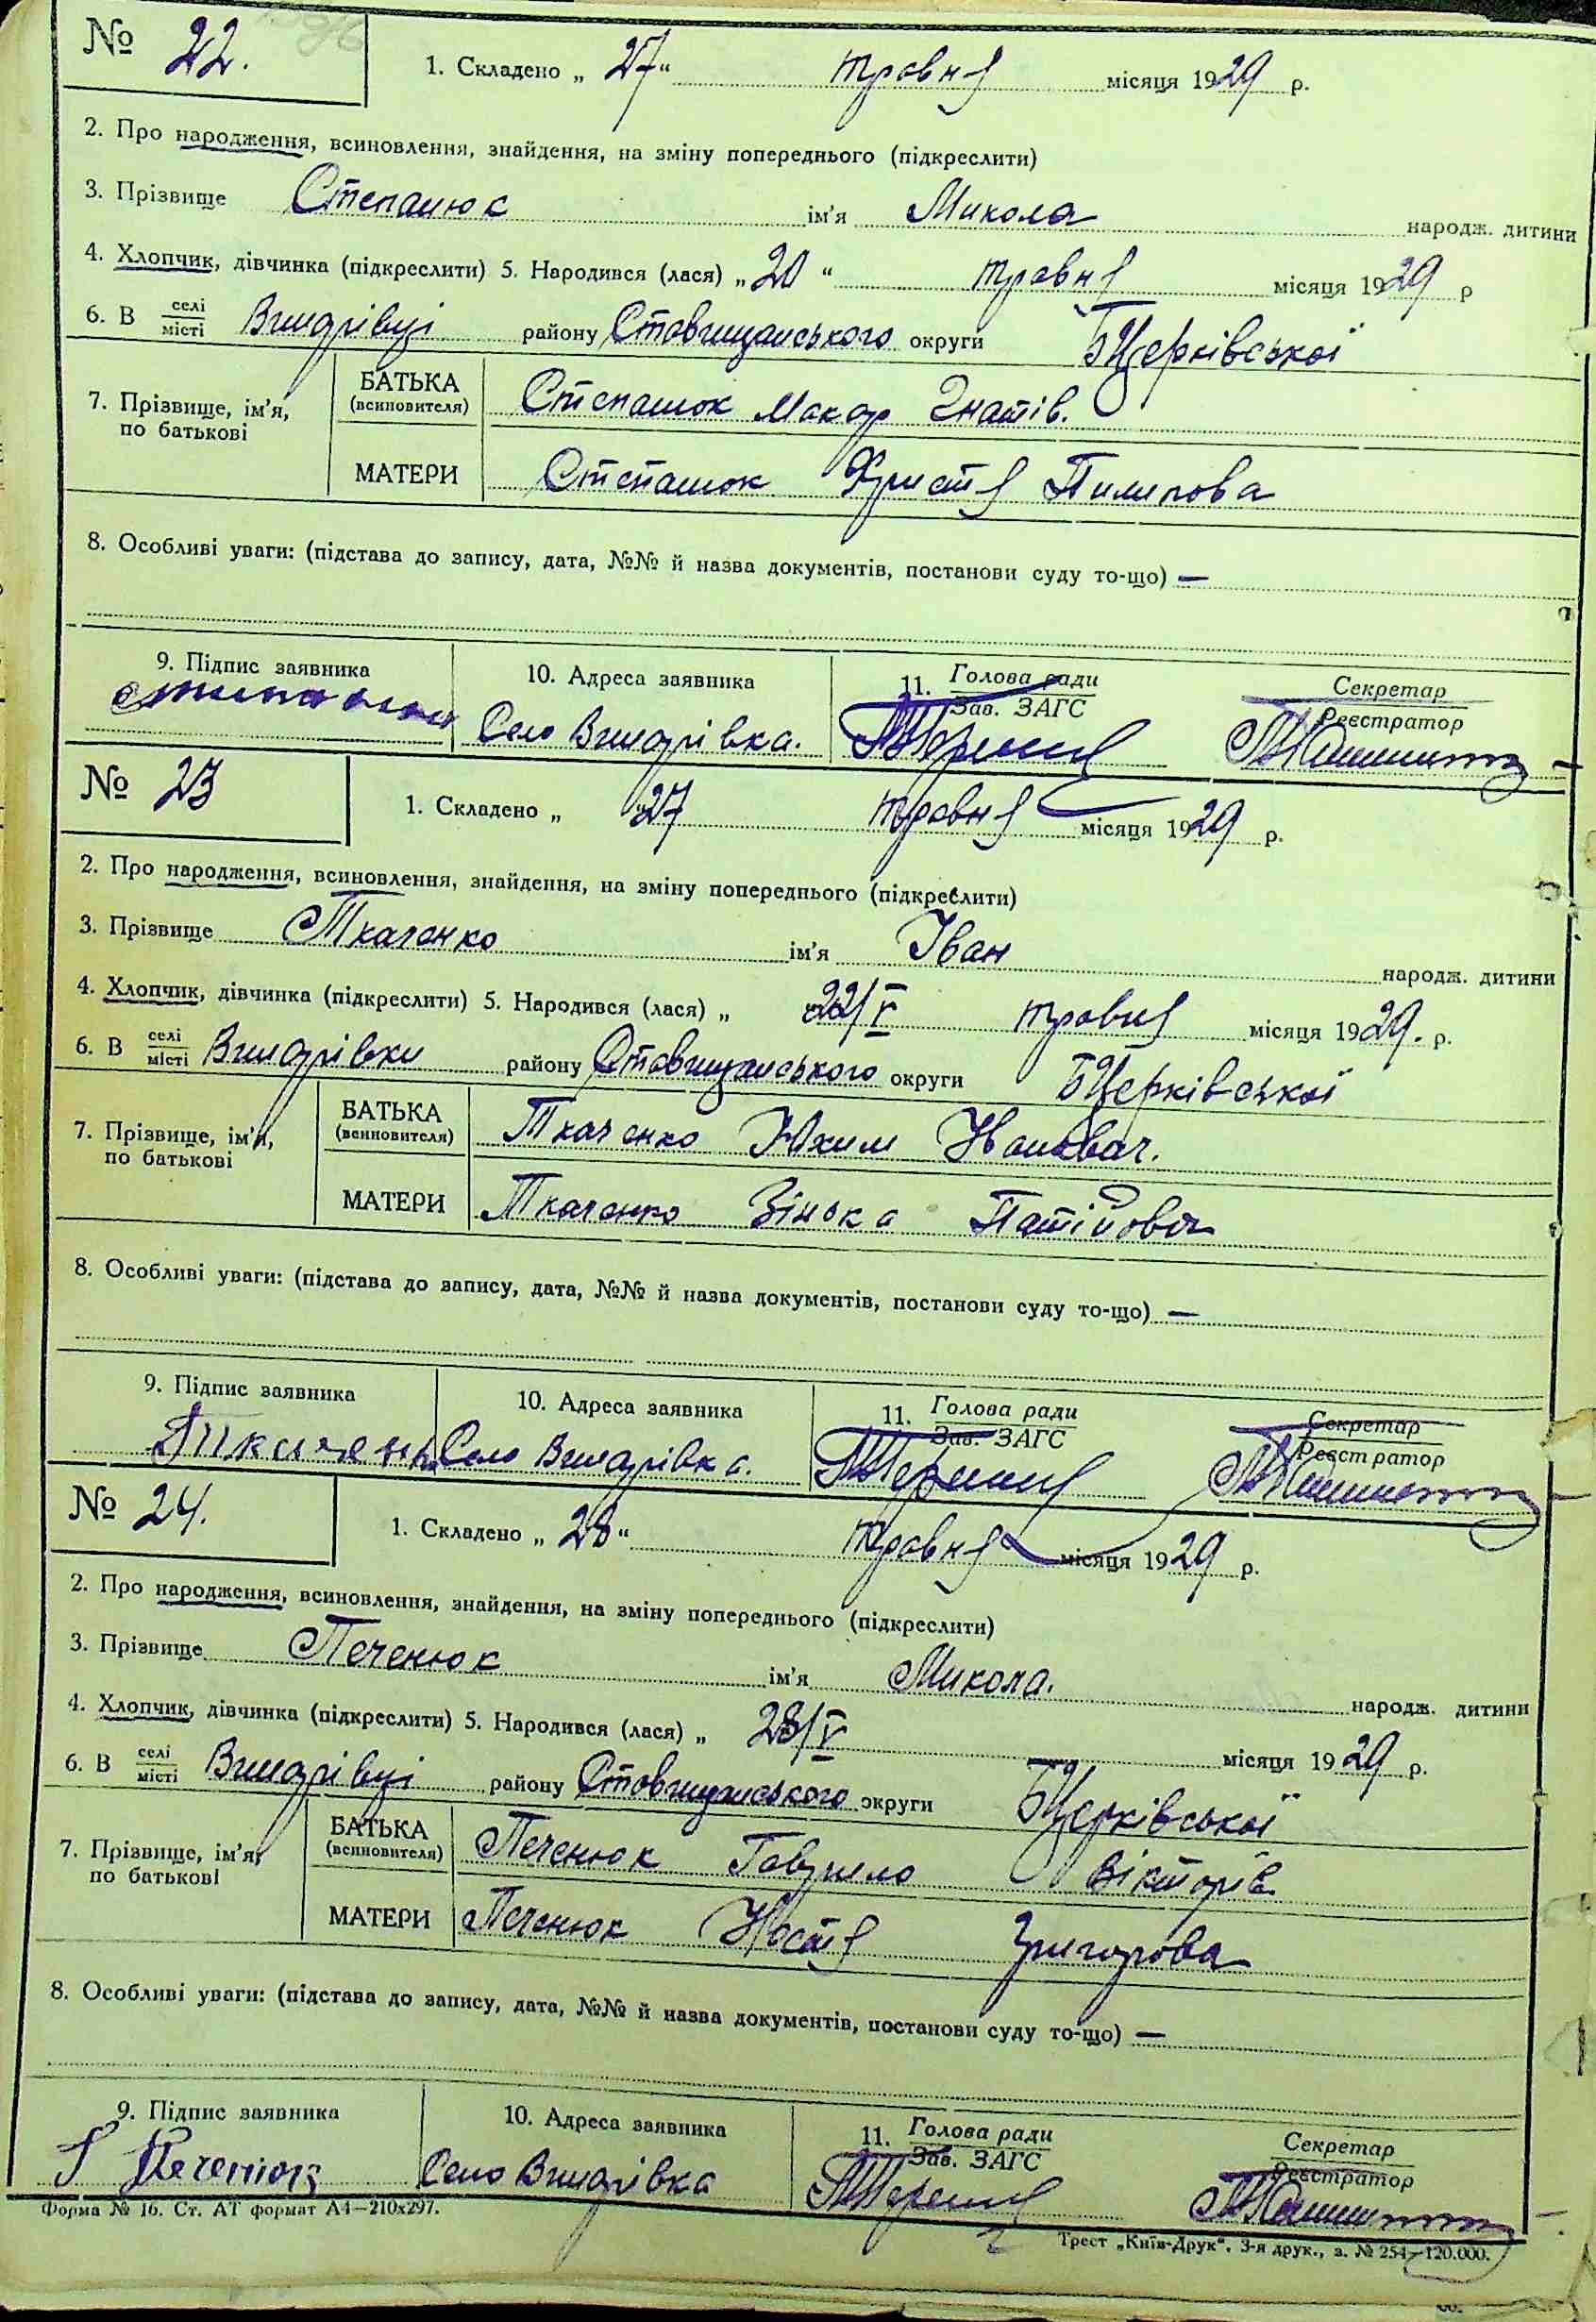 № 22.
1. Складено „ 27 “ травня місяця 1929 р.
2. Про народження, всиновлення, знайдення, на зміну попереднього (підкреслити)
3. Прізвище Степанюк ім'я Микола народж. дитини
4. Хлопчик, дівчинка (підкреслити) 5. Народився (лася) „ 20 “ травня місяця 1929 р
6. В селі місті району Ставищанського округи БЦерківської
7. Прізвище, ім'я, по батькові
БАТЬКА (всиновителя) Степанюк Макар Гнатів.
МАТЕРИ Степанюк Христя Пилипова
8. Особливі уваги: (підстава до запису, дата, №№ й назва документів, постанови суду то-що) —
9. Підпис заявника 10. Адреса заявника 11. Голова ради Секретар
Зав. ЗАГС Реєстратор
Село
№ 23
1. Складено „ 27 травня місяця 1929 р.
2. Про народження, всиновлення, знайдення, на зміну попереднього (підкреслити)
3. Прізвище Ткаченко ім'я Іван народж. дитини
4. Хлопчик, дівчинка (підкреслити) 5. Народився (лася) „ 22/V травня місяця 1929. р.
6. В селі місті району Ставищанського округи БЦерківської
7. Прізвище, ім'я, по батькові
БАТЬКА (всиновителя) Ткаченко Юхим Іванович.
МАТЕРИ Ткаченко Зінька
8. Особливі уваги: (підстава до запису, дата, №№ й назва документів, постанови суду то-що) —
9. Підпис заявника 10. Адреса заявника 11. Голова ради Секретар
Зав. ЗАГС Реєстратор
Село
№ 24.
1. Складено „ 28 “ травня місяця 1929 р.
2. Про народження, всиновлення, знайдення, на зміну попереднього (підкреслити)
3. Прізвище Печенюк ім'я Микола. народж. дитини
4. Хлопчик, дівчинка (підкреслити) 5. Народився (лася) „ 23/V місяця 1929 р.
6. В селі місті району Ставищанського округи БЦерківської
7. Прізвище, ім'я, по батькові
БАТЬКА (всиновителя) Печенюк Гаврило Вікторів
МАТЕРИ Печенюк Настя Григорова
8. Особливі уваги: (підстава до запису, дата, №№ й назва документів, постанови суду то-що) —
9. Підпис заявника 10. Адреса заявника 11. Голова ради Секретар
Зав. ЗАГС Реєстратор
Печенюк Село
Форма № 16. Ст. АТ формат А4—210х297.
Трест „Київ-Друк“. 3-я друк., з. № 254—120.000.